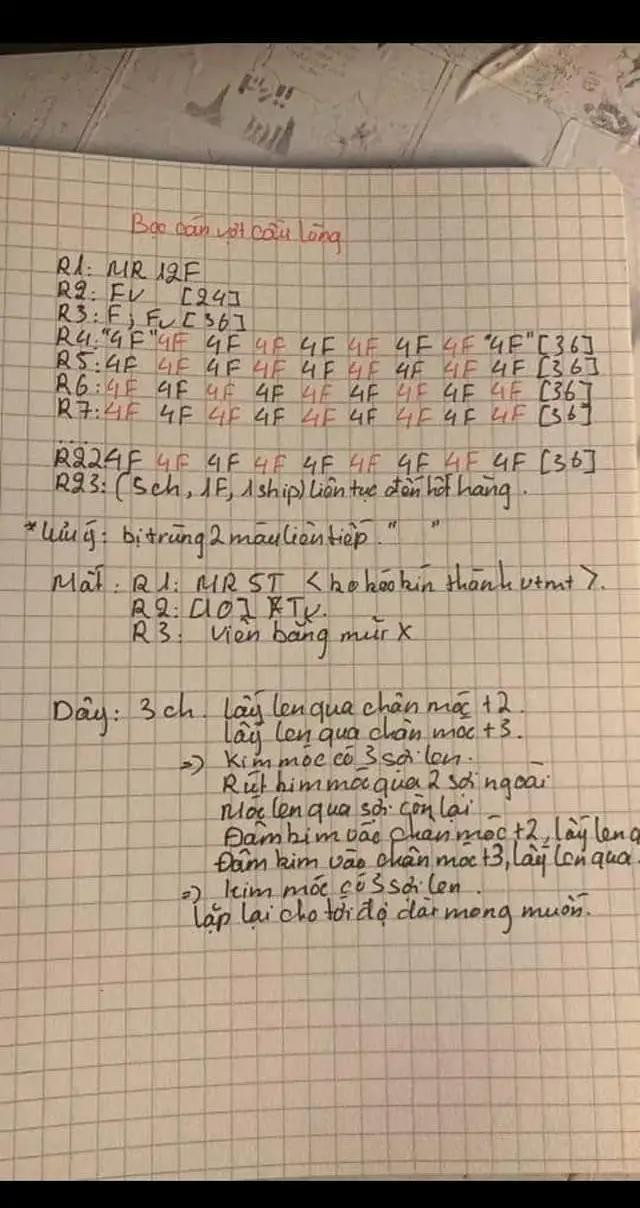 Bao cán vợt cầu lông
R1: MR 12F
R2: FV [24]
R3: F, FV [36]
R4: "4F" 4F 4F 4F 4F 4F 4F 4F "4F" [36]
R5: 4F 4F 4F 4F 4F 4F 4F 4F 4F [36]
R6: 4F 4F 4F 4F 4F 4F 4F 4F 4F [36]
R7: 4F 4F 4F 4F 4F 4F 4F 4F 4F [36]
...
R22 4F 4F 4F 4F 4F 4F 4F 4F 4F [36]
R23: (5ch, 1F, 1 ship) liên tục đến hết hàng.
*Lưu ý: bị trùng 2 màu liên tiếp. " "
Mắt: R1: MR 5T <ko kéo kín thành vtmt>.
R2: [10] TV.
R3: viền bằng mũi X
Dây: 3 ch. lấy len qua chân móc +2.
lấy len qua chân móc +3.
=> Kim móc có 3 sợi len.
Rút kim móc qua 2 sợi ngoài
Móc len qua sợi còn lại
Đâm kim vào chân móc +2, lấy len q
Đâm kim vào chân móc +3, lấy len qua.
=> kim móc có 3 sợi len.
lặp lại cho tới độ dài mong muốn.